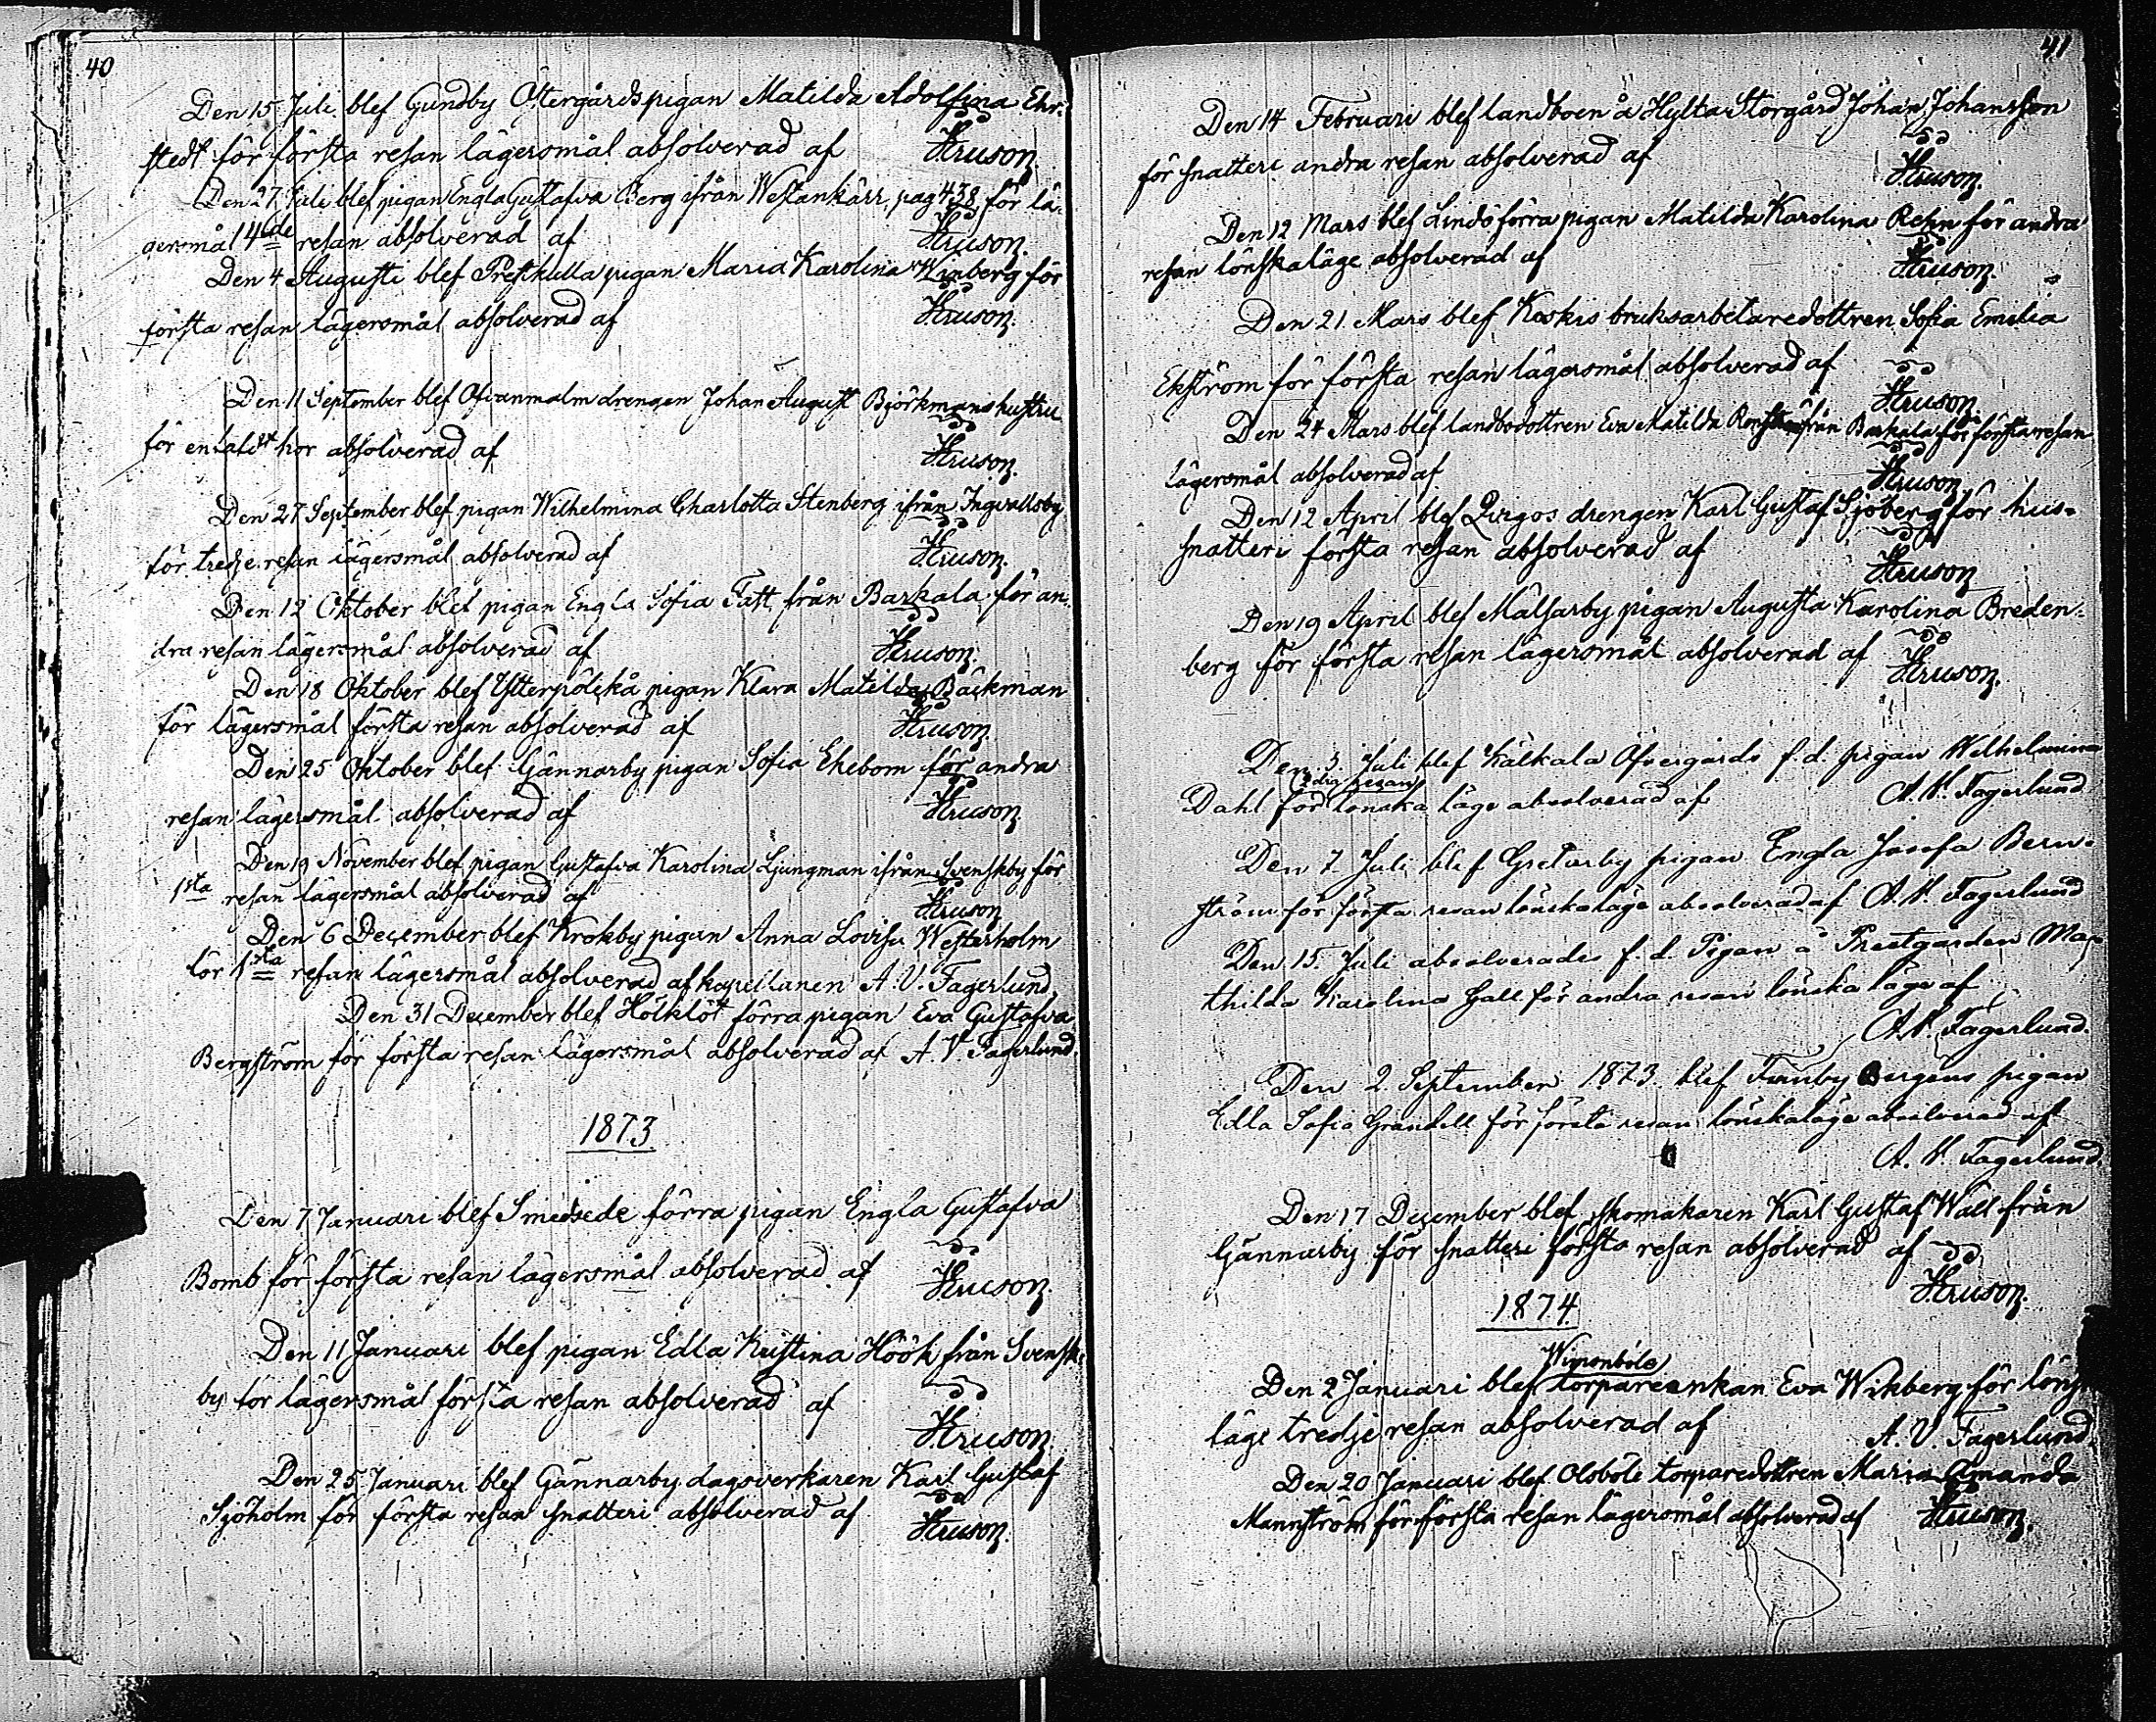 40
Den 15 Juli blef Gundby Östergårdspigan Matilda Adolfina Ehr-
stedt för första resan lägersmål absolverad af Kruson.
Den 27 Juli blef pigan Engla Gustafva Berg ifrån Westankärr, pag 438, för lä-
gersmål 4de resan absolverad af Kruson.
Den 4 Augusti blef Prestkulla pigan Maria Karolina Winberg för
första resan lägersmål absolverad af Kruson.
Den 11 September blef Ofvanmalm drengen Johan August Björkmans hustru
för enkalt hor absolverad af Kruson.
Den 27 September blef pigan Wilhelmina Charlotta Stenberg ifrån Ingvallsby
för tredje resan lägersmål absolverad af Kruson.
Den 12 Oktober blef pigan Engla Sofia Fatt från Barkala för an-
dra resan lägersmål absolverad af Kruson.
Den 18 Oktober blef Ytterpölskä pigan Klara Matilda Bäckman
för lägersmål första resan absolverad af Kruson.
Den 25 Oktober blef Gännarby pigan Sofia Ekebom för andra
resan lägersmål absolverad af Kruson.
Den 19 November blef pigan Gustafva Karolina Ljungman ifrån Svenskby för
1sta resan lägersmål absolverad af Kruson
Den 6 December blef Krokby pigan Anna Lovisa Westerholm
för 1sta resan lägersmål absolverad af kapellanen A. V. Fagerlund.
Den 31 December blef Hölklöt förra pigan Eva Gustafva
Bergström för första resan lägersmål absolverad af A. V. Fagerlund.
1873
Den 7 Januari blef Smedsede förra pigan Engla Gustafva
Bomb för första resan lägersmål absolverad af Kruson.
Den 11 Januari blef pigan Edla Kristina Höök från Svensk-
by för lägersmål första resan absolverad af Kruson.
Den 25 Januari blef Gännarby dagsverkaren Karl Gustaf
Sjöholm för första resan snatteri absolverad af Kruson.
41
Den 14 Februari blef landboen å Hylta Storgård Johan Johansson
för snatteri andra resan absolverad af Kruson.
Den 12 Mars blef Lindö förra pigan Matilda Karolina Rehn för andra
resan lönskaläge absolverad af Kruson.
Den 21 Mars blef Koskis bruksarbetaredottren Sofia Emilia
Ekström för första resan lägersmål absolverad af Kruson
Den 24 Mars blef landbodottren Eva Matilda från Barkala för första resan
lägersmål absolverad af Kruson
Den 12 April blef Qvigos drengen Karl Gustaf Sjöberg för hus-
snatteri första resan absolverad af Kruson
Den 19 April blef Mälsarby pigan Augusta Karolina Breden-
berg för första resan lägersmål absolverad af Kruson.
Den 3. Juli blef Kälkala Öfvergårds f. d. pigan Wilhelmina
2dra resan
Dahl för lönska läge absolverad af A. V. Fagerlund
Den 7. Juli blef Gretarby pigan Engla Josefa Bern-
ström för första resan lönskaläge absolverad af A. V. Fagerlund
Den 15. Juli absolverades f. d. Pigan å Prestgården Ma-
thilda Karolina Hall för andra resan lönska läge af
A. V. Fagerlund.
Den 2 September 1873 blef Finnby Bergens pigan
Edla Sofia Grandell för första resan lönskaläge absolverad af
A. V. Fagerlund.
Den 17 December blef skomakaren Karl Gustaf Wall från
Gännarby för snatteri första resan absolverad af
Kruson.
1874.
Wimonböle
Den 2 Januari blef torpareenkan Eva Wikberg för lönska
läge tredje resan absolverad af A. V. Fagerlund.
Den 20 Januari blef Olsböle torparedottren Maria Amanda
Mannström för första resan lägersmål absolverad af Kruson.